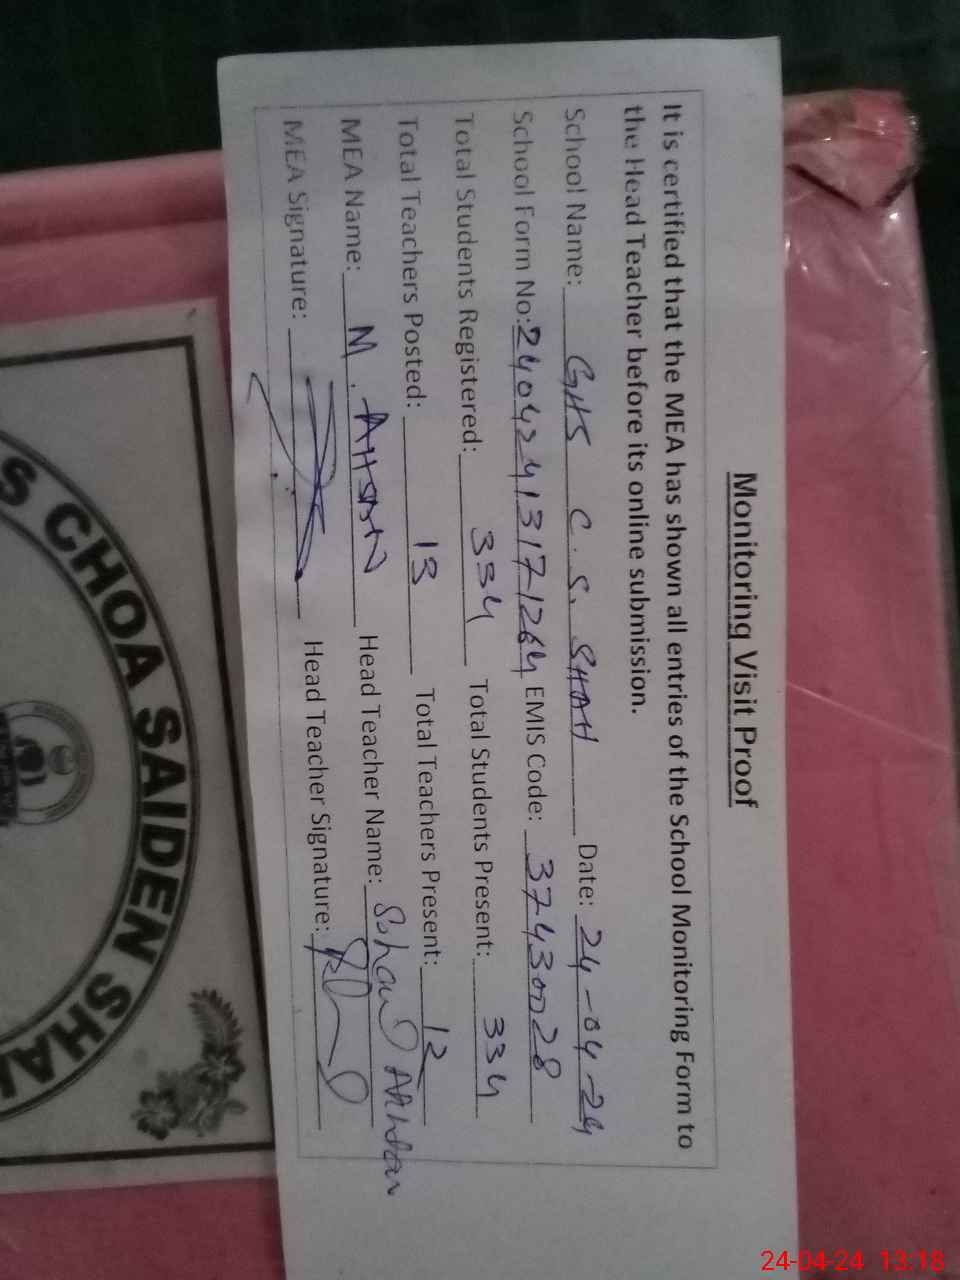 Monitoring Visit Proof
It is certified that the MEA has shown all entries of the School Monitoring Form to
the Head Teacher before its online submission.
School Name: GHS C.S. SHAH Date: 24-04-24
School Form No: 24042413171264 EMIS Code: 37430028
Total Students Registered: 334 Total Students Present: 334
Total Teachers Posted: 13 Total Teachers Present: 12
MEA Name: M. AHSAN Head Teacher Name:
MEA Signature: Head Teacher Signature:
S CHOA SAIDEN SHAH
24-04-24 13:18